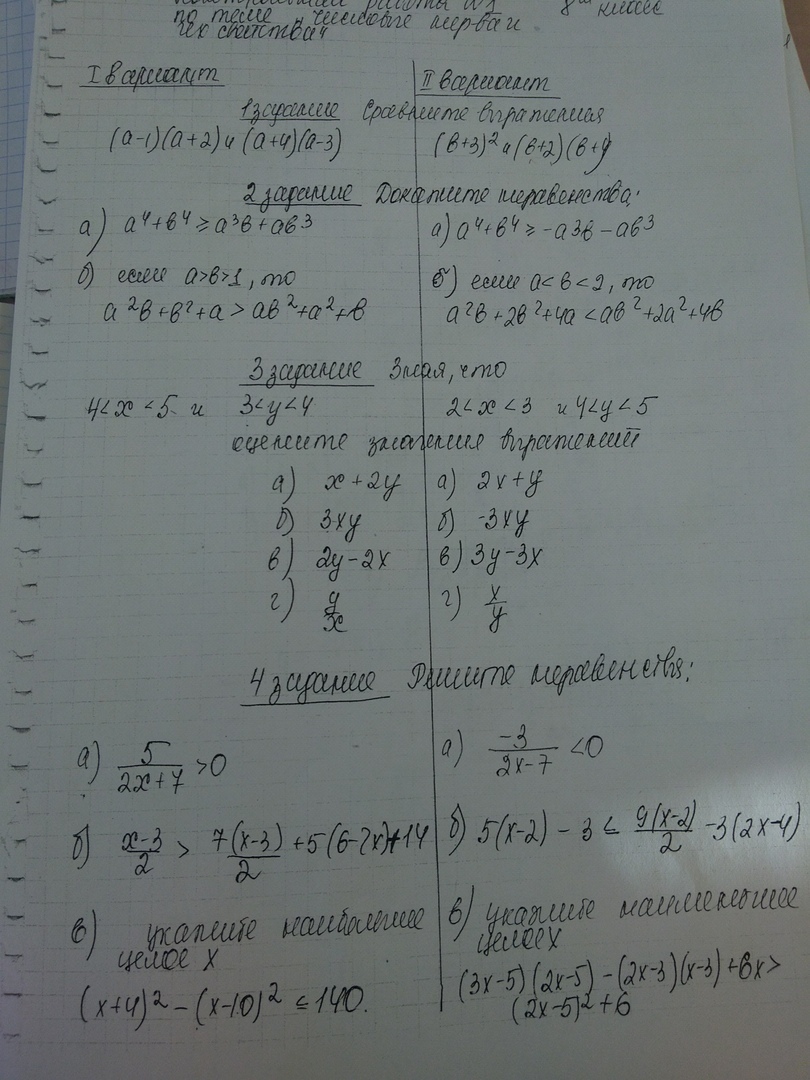 контрольной работы №1 8ой класс
по теме "числовые нерав и
их свойства"
I вариант
II вариант
1 задание Сравните выражения
(a-1)(a+2) и (a+4)(a-3)
(в+3)² и (в+2)(в+4)
2 задание Докажите неравенства:
а) a⁴+в⁴ ≥ a³в+aв³
а) a⁴+в⁴ ≥ -a³в-aв³
б) если a>в>1, то
a²в+в²+a > aв²+a²+в
б) если a<в<2, то
a²в+2в²+4a < aв²+2a²+4в
3 задание Зная, что
4<x<5 и 3<y<4
2<x<3 и 4<y<5
оцените значения выражений
а) x+2y
а) 2x+y
б) 3xy
б) -3xy
в) 2y-2x
в) 3y-3x
г) y/x
г) x/y
4 задание Решите неравенства:
а) 5/(2x+7) >0
а) -3/(2x-7) <0
б) (x-3)/2 > 7(x-3)/2 +5(6-2x)+14
б) 5(x-2) - 3 ≤ 9(x-2)/2 -3(2x-4)
в) укажите наибольшее
целое x
(x+4)² - (x-10)² ≤ 140.
в) укажите наименьшее
целое x
(3x-5)(2x-5) - (2x-3)(x-3)+6x>
(2x-5)²+6